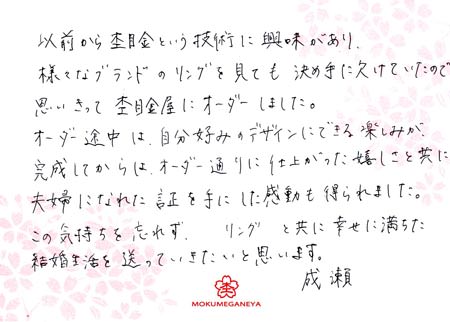 以前から杢目金という技術に興味があり、
様々なブランドのリングを見ても決め手に欠けていたので
思いきって杢目金屋にオーダーしました。
オーダー途中は、自分好みのデザインにできる楽しみが、
完成してからは、オーダー通りに仕上がった嬉しさと共に
夫婦になれた証を手にした感動も得られました。
この気持ちを忘れず、リングと共に幸せに満ちた
結婚生活を送っていきたいと思います。
成瀬
MOKUMEGANEYA